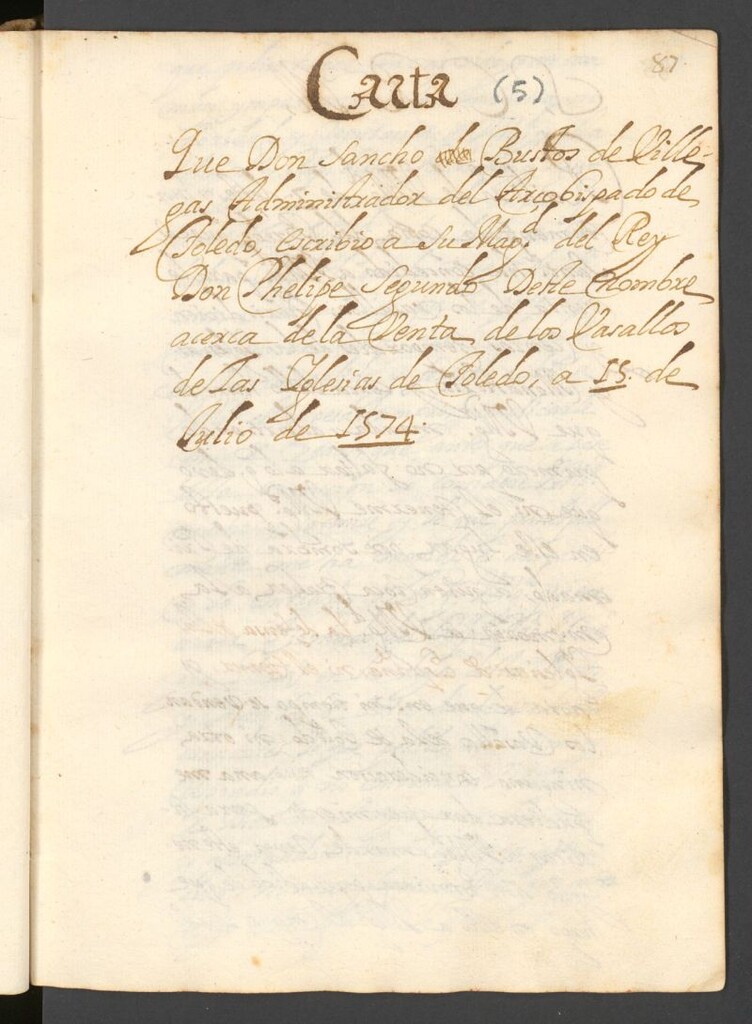 87
Carta (5)
Que Don Sancho Bustos de Ville-
gas Administrador del Arzobispado de
Toledo, escribio a Su Magd. del Rey
Don Phelipe Segundo Deste nombre
acerca de la Venta de los Vasallos
de Las Yglesias de Toledo, a 15. de
Julio de 1574.